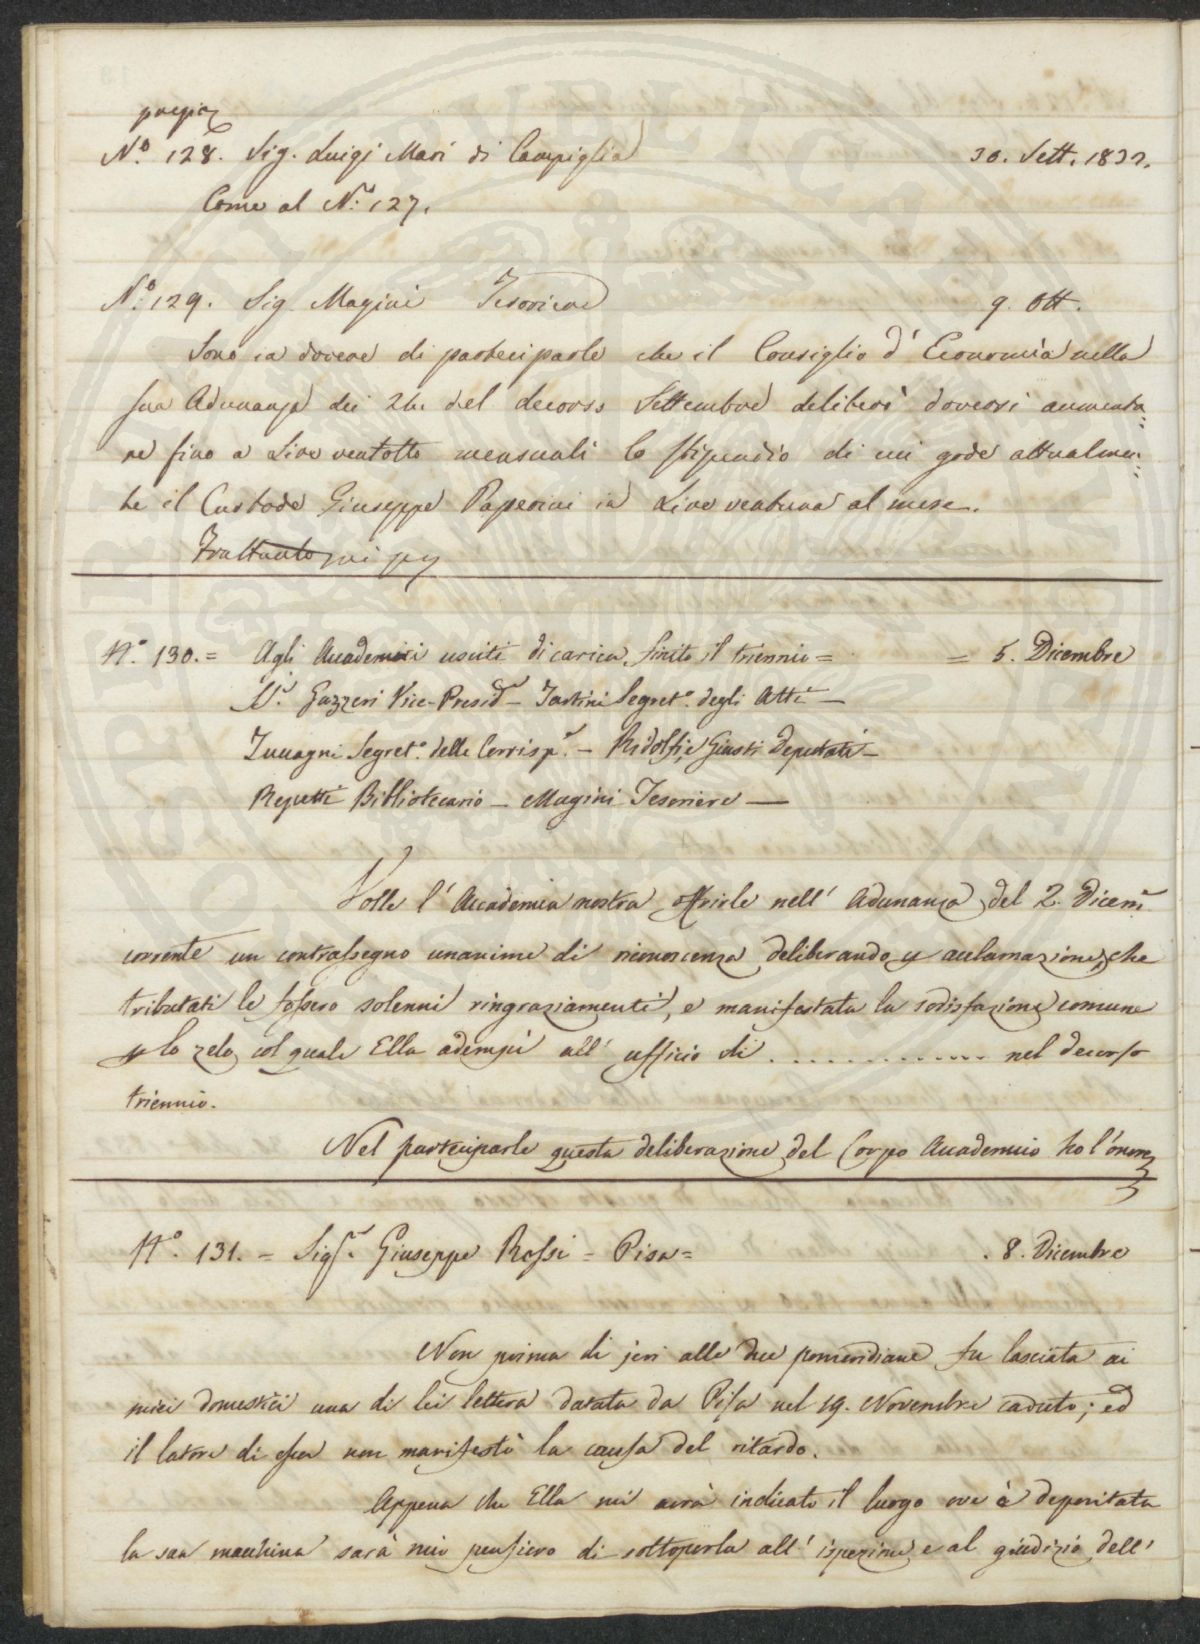 N.º 128. Sig. Luigi Mari di Campiglia 30. Sett. 1832.
Come al N.º 127.
N.º 129. Sig. Magini Tesoriere 9. Ott.
Sono in dovere di parteciparle che il Consiglio d' Economia nella
sua Adunanza dei 24 del decorso Settembre deliberò doversi aumenta=
re fino a Lire ventotto mensuali lo stipendio di cui gode attualmen=
te il Custode Giuseppe Paperini in Lire ventuna al mese.
Frattanto
N.º 130. = Agli Accademici usciti di carica, finito il triennio = = 5. Dicembre
Sr. Gazzeri Vice-Presidte - Tartini Segret.º degli Atti —
Inuagni Segret.º delle Corrisp. - Ridolfi, e Giusti Deputati —
Repetti Bibliotecario - Magini Tesoriere —
Volle l' Accademia nostra offrirle nell' Adunanza del 2. Dicem.
corrente un contrassegno unanime di riconoscenza, deliberando p acclamazione, che
tributati le fossero solenni ringraziamenti, e manifestata la sodisfazione comune
p lo zelo, col quale Ella adempì all' ufficio di . . . . . . . . . . . . . nel decorso
triennio.
Nel parteciparle questa deliberazione del Corpo Accademico ho l'onore
N.º 131. = Sigr. Giuseppe Rossi = Pisa = . 8. Dicembre
Non prima di jeri alle due pomeridiane fu lasciata ai
miei domestici una di lei lettera datata da Pisa nel 19. Novembre caduto; ed
il latore di essa non manifestò la causa del ritardo.
Appena che Ella mi avrà indicato il luogo ove è depositata
la sua macchina sarà mio pensiero di sottoporla all' ispezione e al giudizio dell'